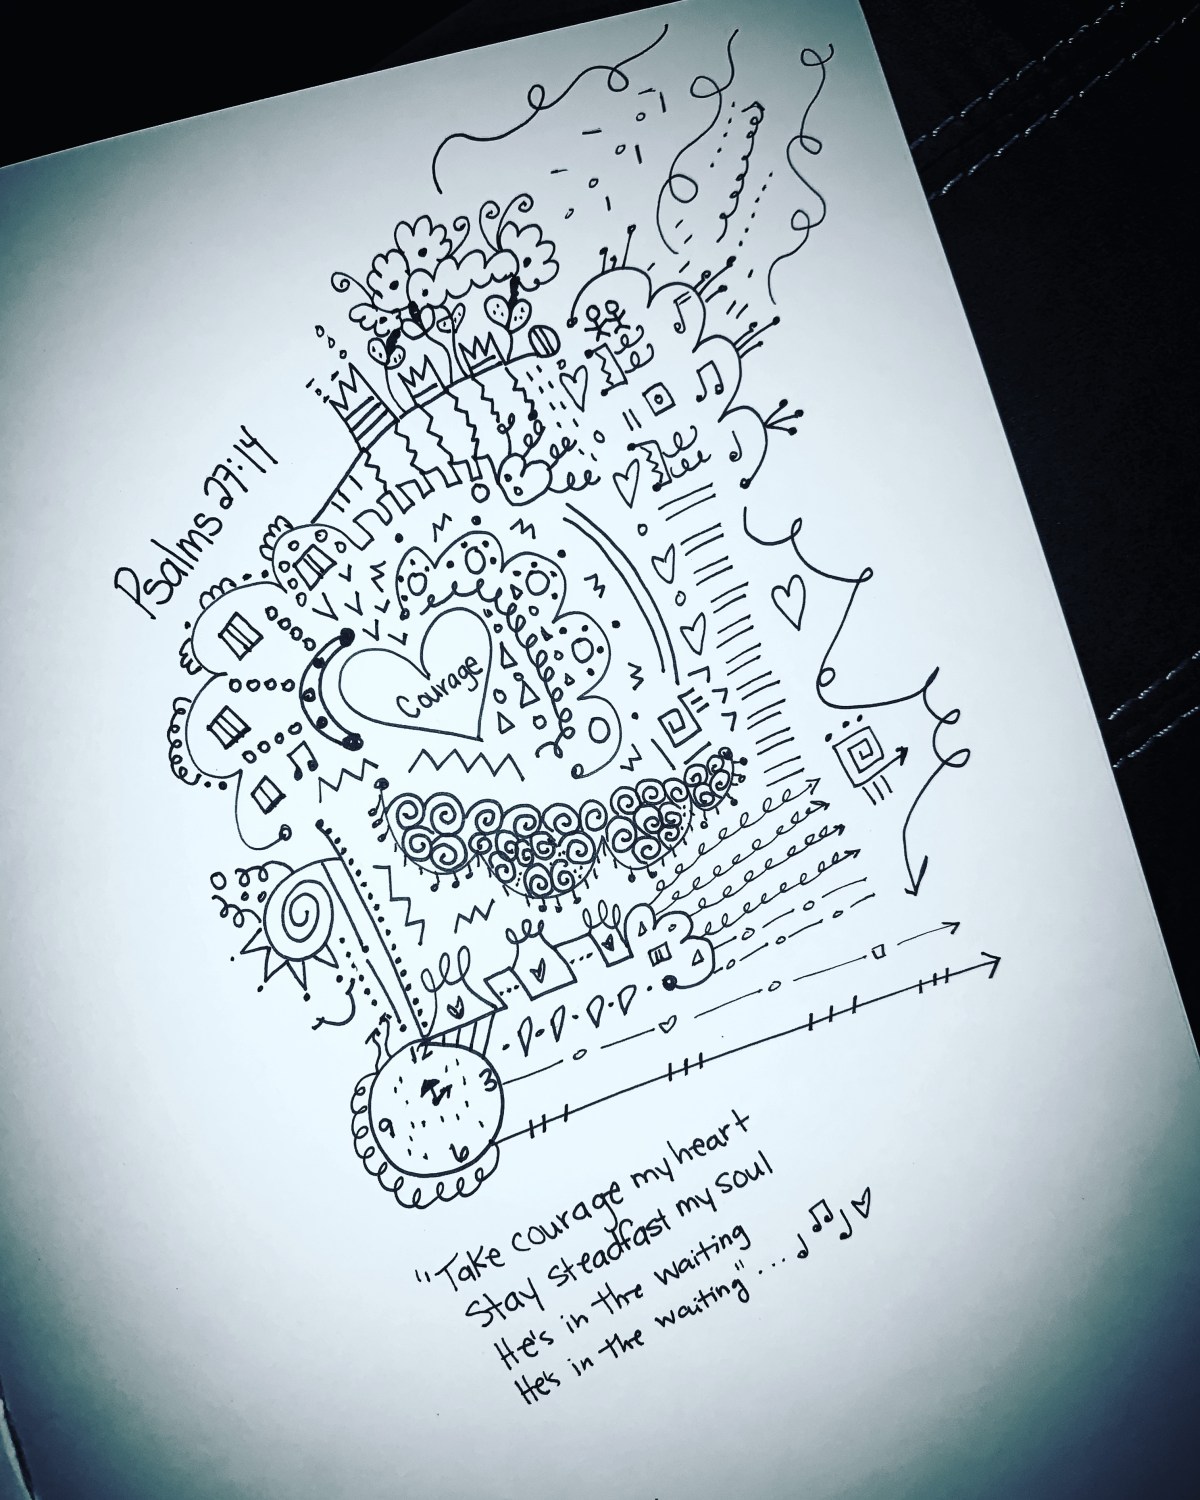 Psalms 27:14
Courage
12
3
9
6
"Take courage my heart
Stay steadfast my soul
He's in the waiting
He's in the waiting"...